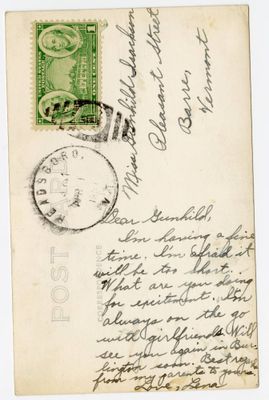 Miss Gunhild Isackson
Pleasant Street
Barre,
Vermont
READSBORO,
VT.
POST CARD
CORRESPONDENCE
Dear Gunhild,
I'm having a fine
time. I'm afraid it
will be too short.
What are you doing
for exictment. I'm
always on the go
with girlfriends. Will
see you again in Bur-
lington soon. Best regards
from my parents to yours.
Love, Lena